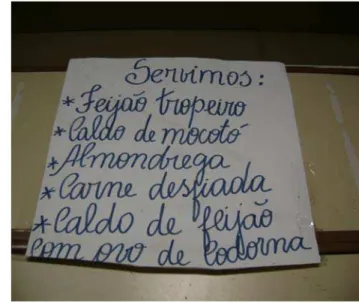 Servimos:
* Feijão tropeiro
* Caldo de mocotó
* Almondrega
* Carne desfiada
* Caldo de feijão
Com ovo de Codorna